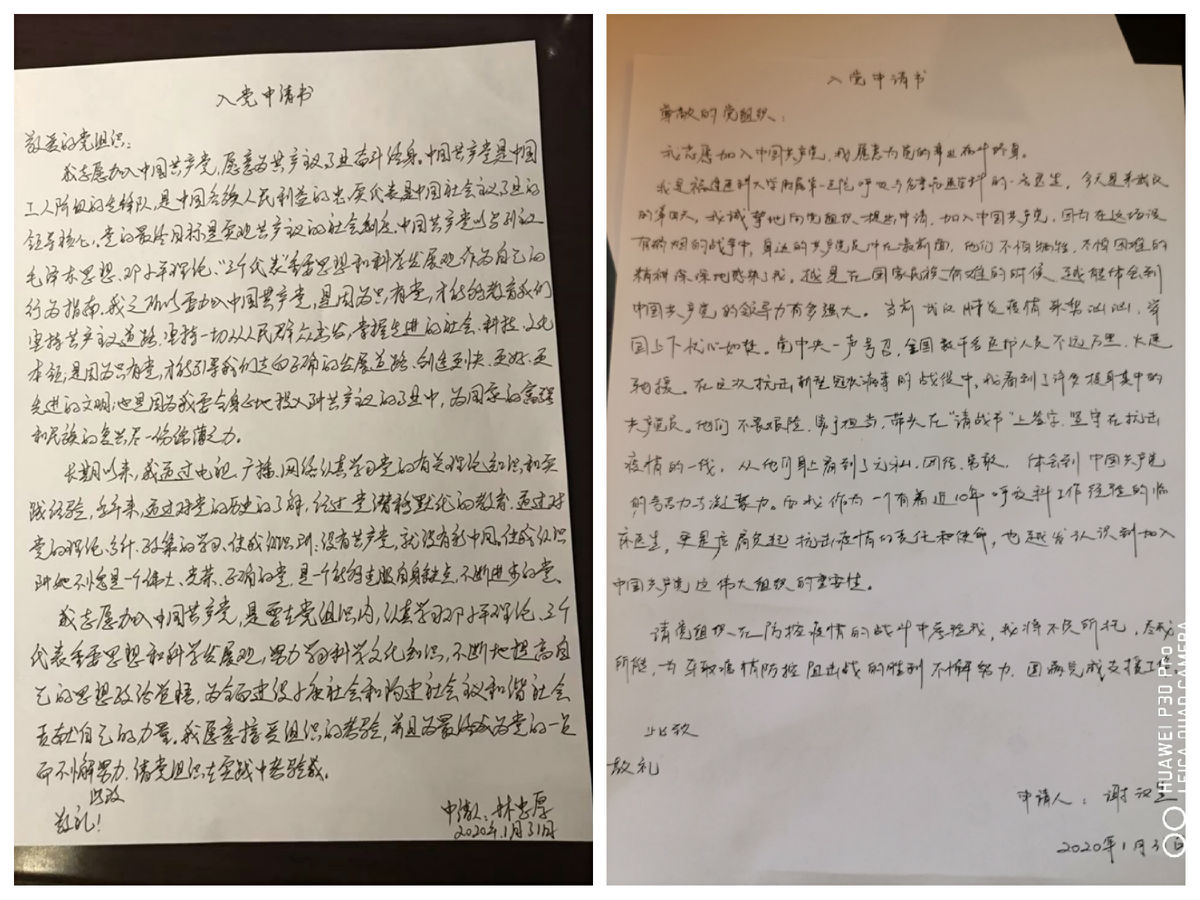 入党申请书
敬爱的党组织:
我志愿加入中国共产党,愿意为共产主义事业奋斗终身。中国共产党是中国
工人阶级的先锋队,是中国各族人民利益的忠实代表,是中国社会主义事业的
领导核心,党的最终目标是实现共产主义的社会制度。中国共产党以马列主义
毛泽东思想、邓小平理论、“三个代表”重要思想和科学发展观作为自己的
行为指南。我之所以要加入中国共产党,是因为只有党,才能够教育我们
坚持共产主义道路,坚持一切从人民群众出发,掌握先进的社会、科技、文化
本领;是因为只有党,才能引导我们走向正确的发展道路,创造更快、更好、更
先进的文明;也是因为我要全身心地投入到共产主义的事业中,为国家的富强
和民族的复兴尽一份绵薄之力。
长期以来,我通过电视、广播、网络认真学习党的有关理论知识和实
践经验,多年来,通过对党的历史的了解,经过党潜移默化的教育,通过对
党的理论、方针、政策的学习,使我认识到:没有共产党,就没有新中国。使我认识
到她不愧是一个伟大、光荣、正确的党,是一个能够克服自身缺点,不断进步的党。
我志愿加入中国共产党,是要在党组织内,认真学习邓小平理论、三个
代表重要思想和科学发展观,努力学习科学文化知识,不断地提高自
己的思想政治觉悟,为全面建设小康社会和构建社会主义和谐社会
贡献自己的力量。我愿意接受组织的考验,并且为最终成为党的一员
而不懈努力,请党组织在实践中考验我。
此致
敬礼!
申请人:林忠厚
2020年1月31日
入党申请书
尊敬的党组织:
我志愿加入中国共产党,我愿意为党的事业奋斗终身。
我是福建医科大学附属第一医院呼吸与危重症医学科的一名医生,今天是来武汉
的第四天,我诚挚地向党组织提出申请,加入中国共产党,因为在这场没
有硝烟的战争中,身边的共产党员冲在最前面,他们不怕牺牲、不惧困难的
精神深深地感染了我。越是在国家民族有难的时候,越能体会到
中国共产党的领导力有多强大。当前武汉肺炎疫情来势汹汹,举
国上下忧心如焚。党中央一声号召,全国数千名医护人员不远万里,火速
驰援。在这次抗击新型冠状病毒的战役中,我看到了许多投身其中的
共产党员。他们不畏艰险、勇于担当,带头在“请战书”上签字,坚守在抗击
疫情的一线,从他们身上看到了无私、团结、勇敢,体会到中国共产党
的号召力与凝聚力。而我作为一个有着近10年呼吸科工作经验的临
床医生,更是应肩负起抗击疫情的责任和使命,也越发认识到加入
中国共产党这伟大组织的重要性。
请党组织在防控疫情的战斗中考验我,我将不负所托,尽我
所能,为夺取疫情防控阻击战的胜利不懈努力,圆满完成支援工作
此致
敬礼
申请人:谢汉
2020年1月3日
HUAWEI P30 PRO
LEICA QUAD CAMERA